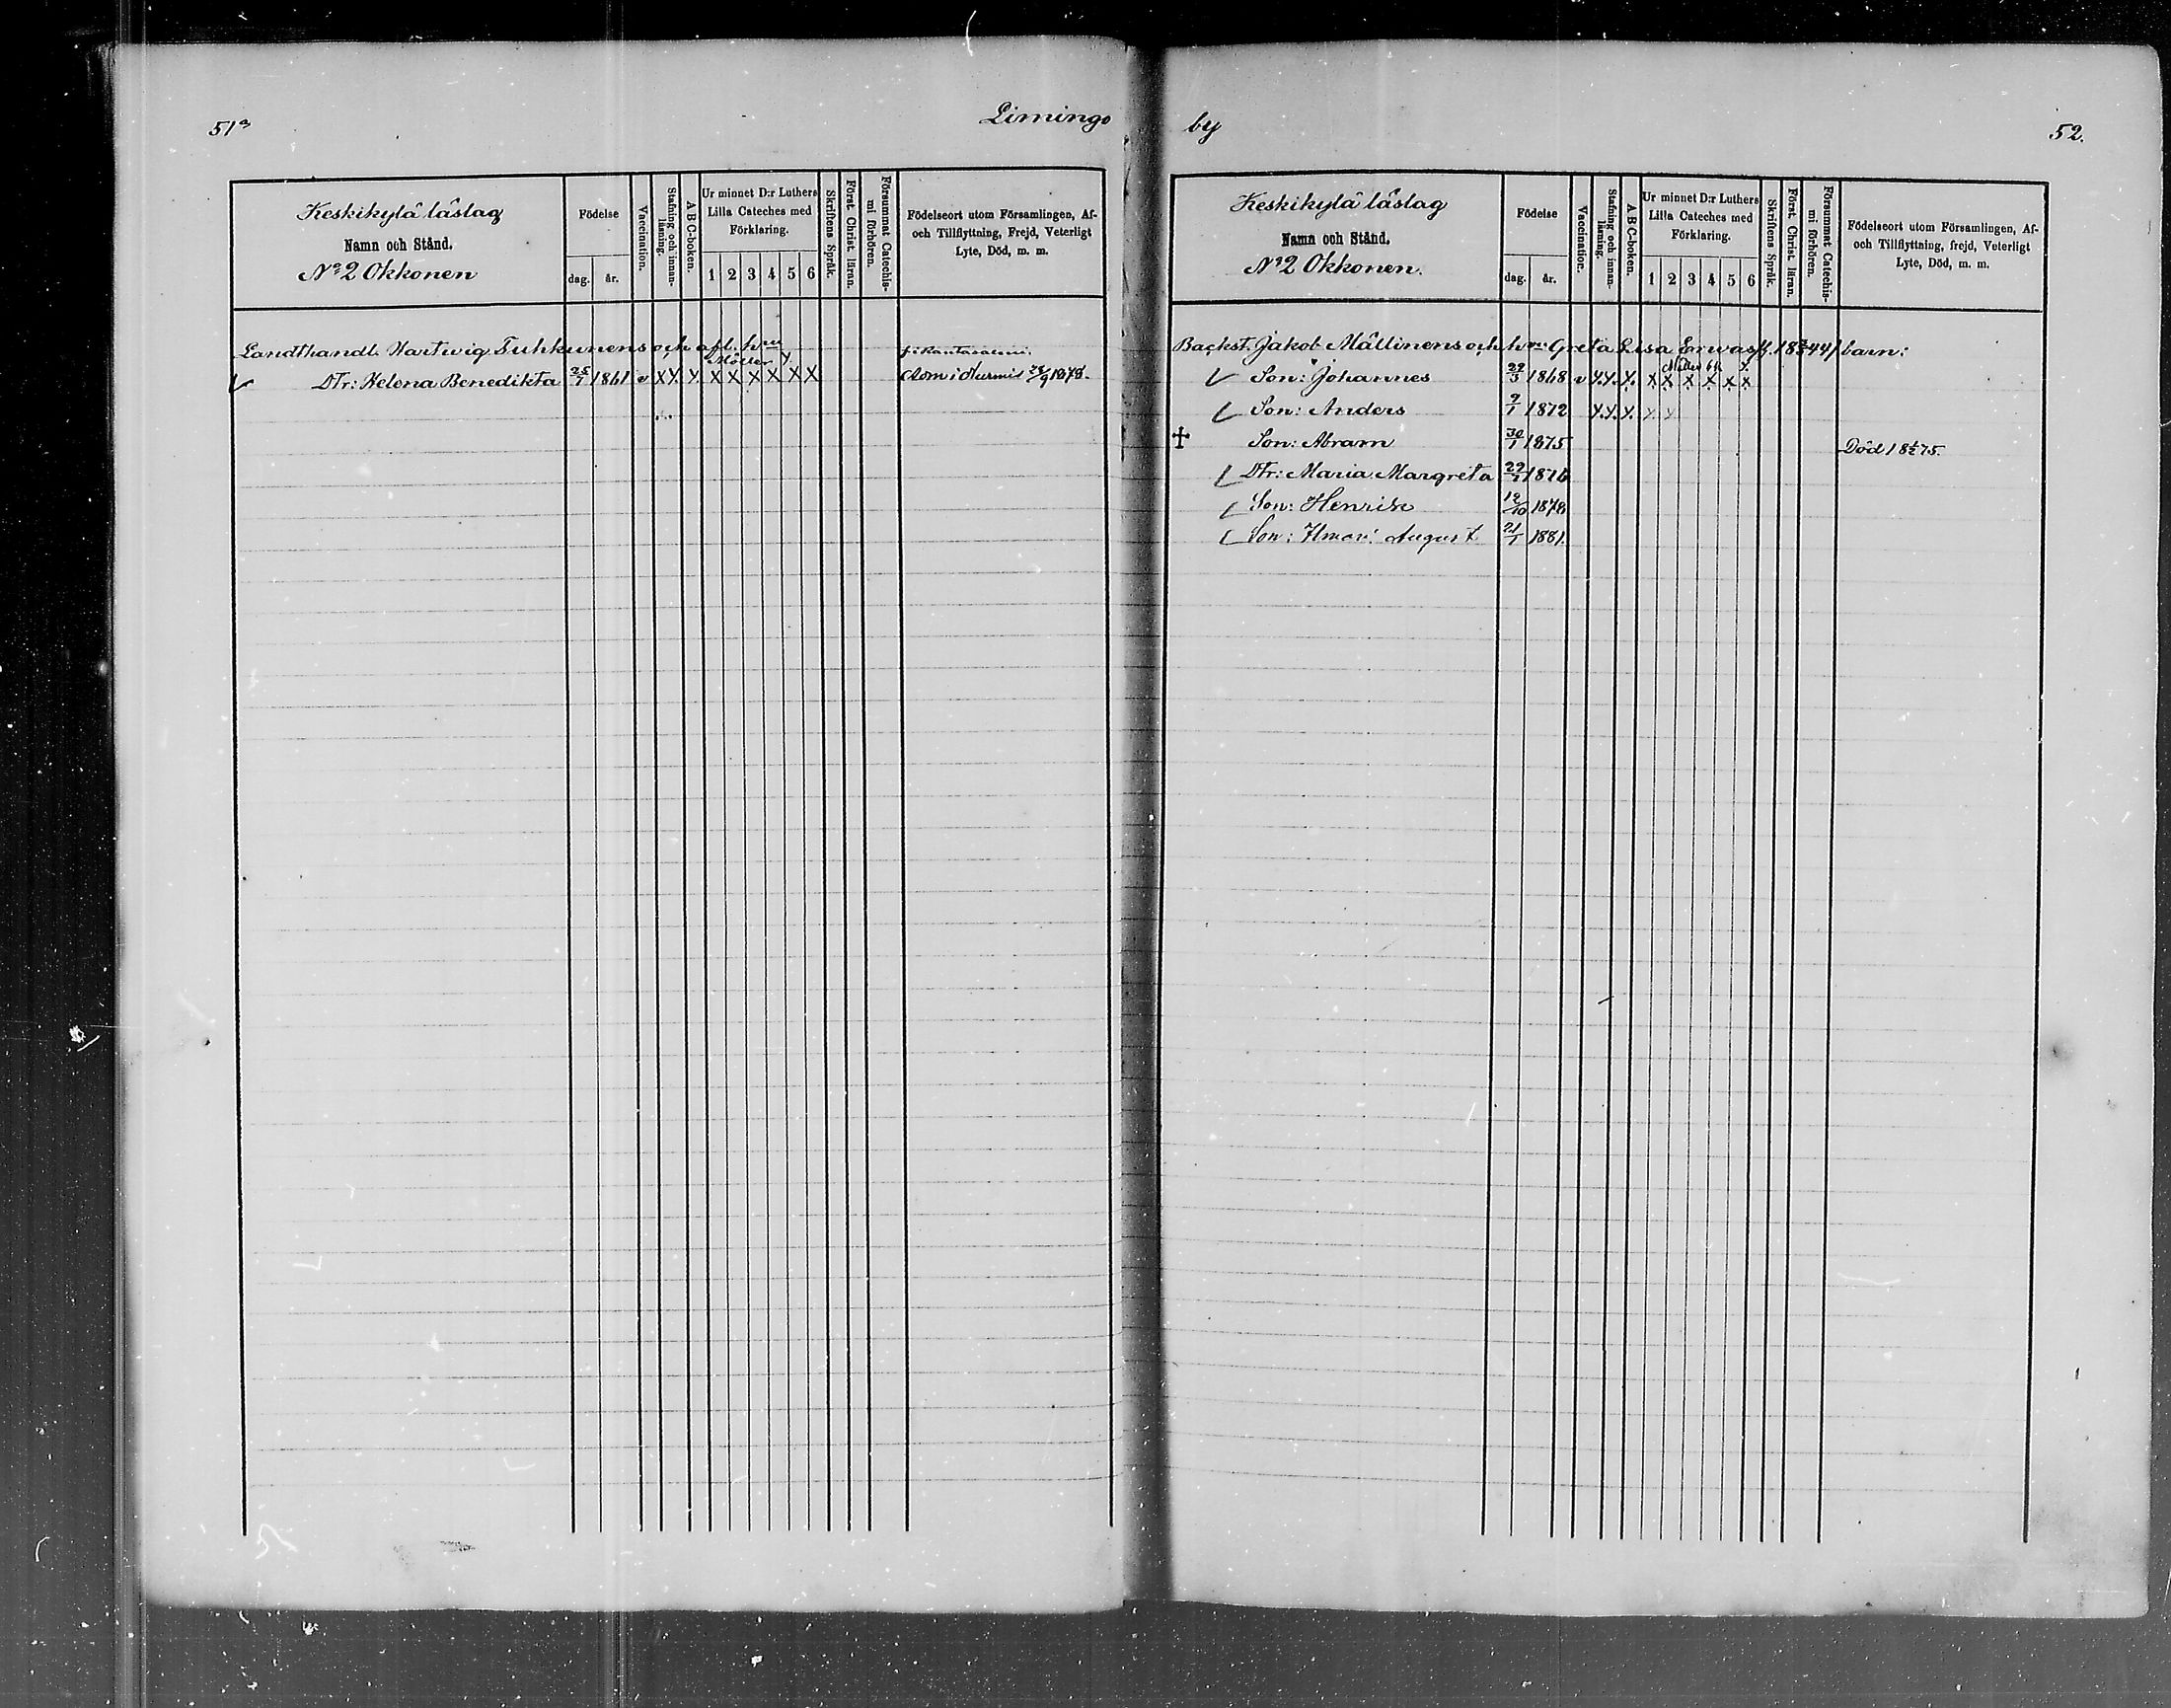 51a
Limingo
Keskikylä läslag
Namn och Stånd.
No 2 Okkonen
Födelse
dag.
år.
Vaccination.
Stafning och innan-
läsning.
A B C-boken.
Ur minnet D:r Luthers
Lilla Cateches med
Förklaring.
1 2 3 4 5 6
Skriftens Språk.
Först. Christ. läran.
Försummat Catechis-
mi förhören.
Födelseort utom Församlingen, Af-
och Tillflyttning, Frejd, Veterligt
Lyte, Död, m. m.
Landthandl. Hartwig Tuhkunens och afl. h:ru
Möller y
f. i Rantasalmi.
Dtr: Helena Benedikta 25/7 1861 v X Y. Y. X X X X X X
by
52.
Keskikylä läslag
Namn och Stånd.
No 2 Okkonen.
Födelse
dag.
år.
Vaccination.
Stafning och innan-
läsning.
A B C-boken.
Ur minnet D:r Luthers
Lilla Cateches med
Förklaring.
1 2 3 4 5 6
Skriftens Språk.
Först. Christ. läran.
Försummat Catechis-
mi förhören.
Födelseort utom Församlingen, Af-
och Tillflyttning, frejd, Veterligt
Lyte, Död, m. m.
Backst. Jakob Mällinens och h:ru Greta Lisa barn:
Son: Johannes 29/3 1868 v Y. Y. Y. X X X X X X
Son: Anders 9/1 1872 Y. Y. Y. Y Y
Son: Abram 30/1 1875
Död 18 75.
Dtr: Maria Margreta 1876
Son: Henrik 12/10 1878
Son: Ilmari August 21/1 1881.